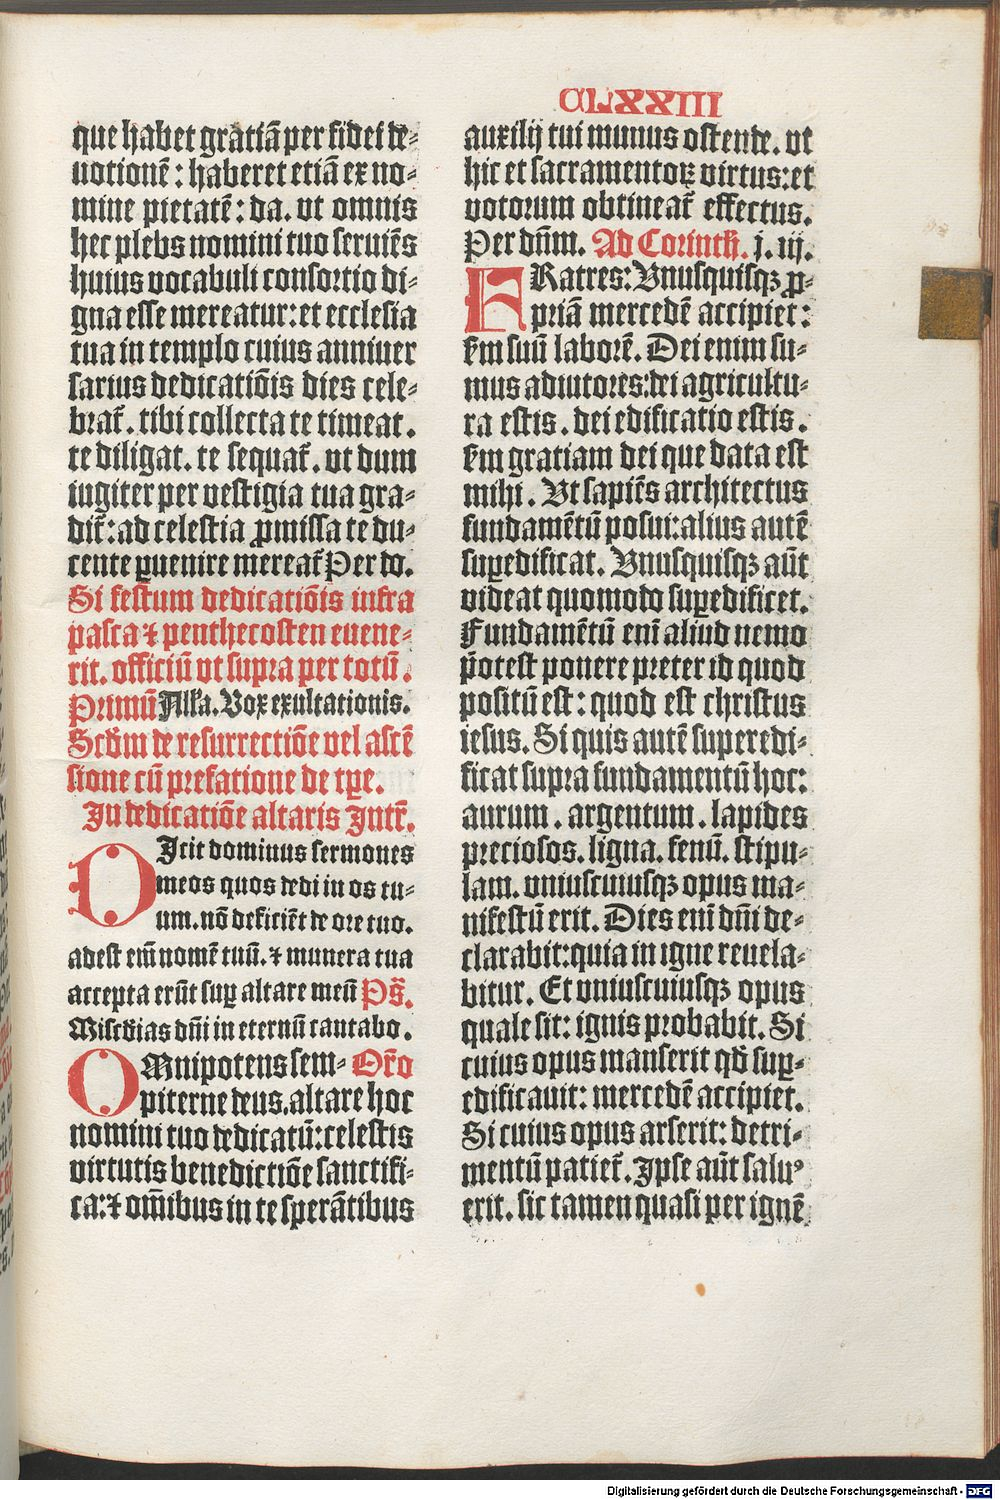 CLXXIII
que habet gratiā per fidei de⸗
uotionē : haberet etiā ex no⸗
mine pietatē : da. vt omnis
hec plebs nomini tuo seruiēs
huius vocabuli consortio di⸗
gna esse mereatur: et ecclesia
tua in templo cuius anniuer
sarius dedicatiōis dies cele⸗
brat᷑. tibi collecta te timeat.
te diligat. te sequat᷑. vt dum
iugiter per vestigia tua gra⸗
dit᷑: ad celestia ꝓmissa te du⸗
cente ꝑuenire mereat᷑ Per do.
Si festum dedicatiōis infra
pasca ⁊ penthecosten euene⸗
rit. officiū vt supra per totū.
Primū Alľa. Vox exultationis.
Scďm de resurrectiōe vel ascē
sione cū prefatione de tꝑe.
In dedicatiōe altaris Intr̄.
DIcit dominus sermones
meos quos dedi in os tu⸗
um. nō deficiēt de ore tuo.
adest em̄ nomē tuū. ⁊ munera tua
accepta erūt suꝑ altare meū Ps̄.
Miscďias dn̄i in eternū cantabo.
OMnipotens sem⸗ Or̄o
piterne deus. altare hoc
nomini tuo dedicatū: celestis
virtutis benedictiōe sanctifi⸗
ca: ⁊ om̄ibus in te sperātibus
auxilij tui munus ostende. vt
hic et sacramentoꝝ virtus: et
votorum obtineat᷑ effectus.
Per dn̄m. Ad Corinth̄. j. iij.
FRatres: Vnusquisqꝫ ꝓ⸗
priā mercedē accipiet:
s̄m suū laborē. Dei enim su⸗
mus adiutores: dei agricultu⸗
ra estis. dei edificatio estis.
s̄m gratiam dei que data est
mihi. Vt sapiēs architectus
fundamētū posui: alius autē
suꝑedificat. Vnusquisqꝫ aūt
videat quomodo suꝑedificet.
Fundamētū enī aliud nemo
p̄otest ponere preter id quod
positū est : quod est christus
iesus. Si quis autē superedi⸗
ficat supra fundamentū hoc:
aurum. argentum. lapides
preciosos. ligna. fenū. stipu⸗
lam. vniuscuiusqꝫ opus ma⸗
nifestū erit. Dies enī dn̄i de⸗
clarabit: quia in igne reuela⸗
bitur. Et vniuscuiusqꝫ opus
quale sit: ignis probabit. Si
cuius opus manserit qď suꝑ⸗
edificauit: mercedē accipiet.
Si cuius opus arserit: detri⸗
mentū patiet᷑. Ipse aūt saluꝰ
erit. sic tamen quasi per ignē
Digitalisierung gefördert durch die Deutsche Forschungsgemeinschaft - DFG